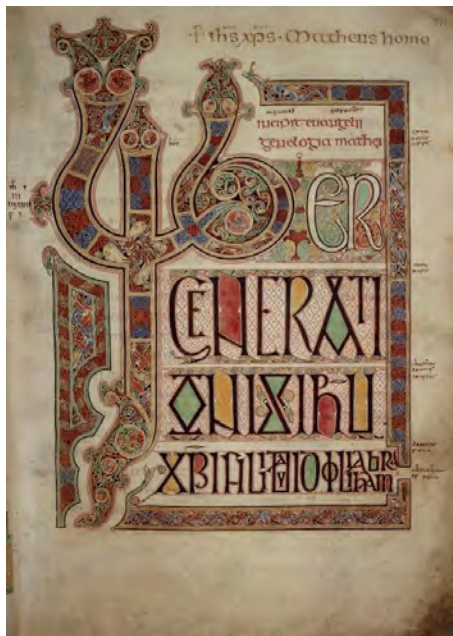 + ihs xps. Mattheus homo
incipit euangelii
genelogia mathei
LIBER
GENERATI
ONISIHU
XPI FILII DAVID FILII ABRAHAM